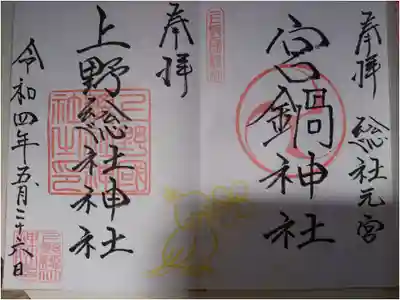 奉拝 総社元宮
宮鍋神社
奉拝
上野総社神社
令和四年五月二十六日